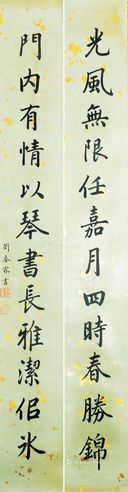 光風無限任嘉月四時春勝錦
門內有情以琴書長雅潔侶冰
劉春霖書